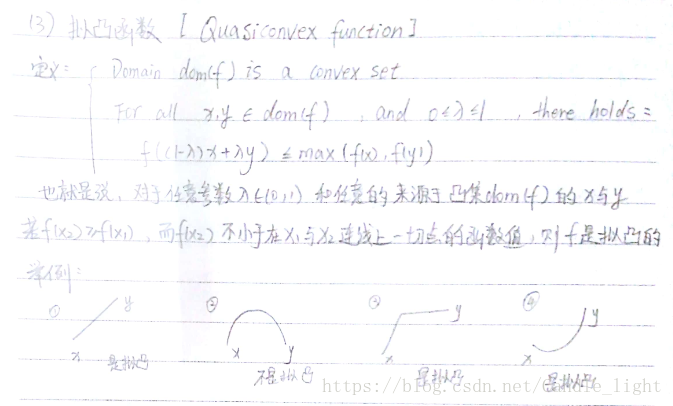 (3) 拟凸函数 [Quasiconvex function]
定义: Domain dom(f) is a convex set
For all x,y ∈ dom(f), and 0≤λ≤1, there holds:
f((1-λ)x+λy) ≤ max(f(x),f(y))
也就是说,对于任意参数λ∈(0,1)和任意的来源于凸集dom(f)的x与y
若f(x₂)≥f(x₁),而f(x₂)不小于在x₁与x₂连线上一切点的函数值,则f是拟凸的
举例:
① x y ② x y ③ x y ④ x y
是拟凸 不是拟凸 是拟凸 是拟凸
https://blog.csdn.net/Candle_light